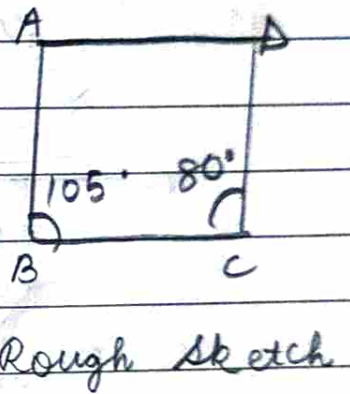 A D
105° 80°
B C
Rough Sketch